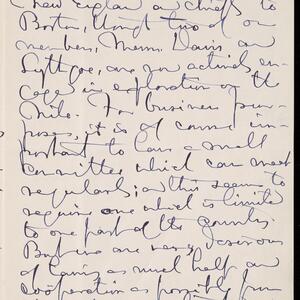 to
Boston, though two of our
members, Messrs. Davis and
Lythgoe, are now actively en-
gaged in exploration on the
Nile. For business pur-
poses, it is of course im-
portant to have a small
committee which can meet
regularly; and this seems to
require one which is limited
to one part of the country.
But we are very desirous
of having as much help and
coöperation as possible from